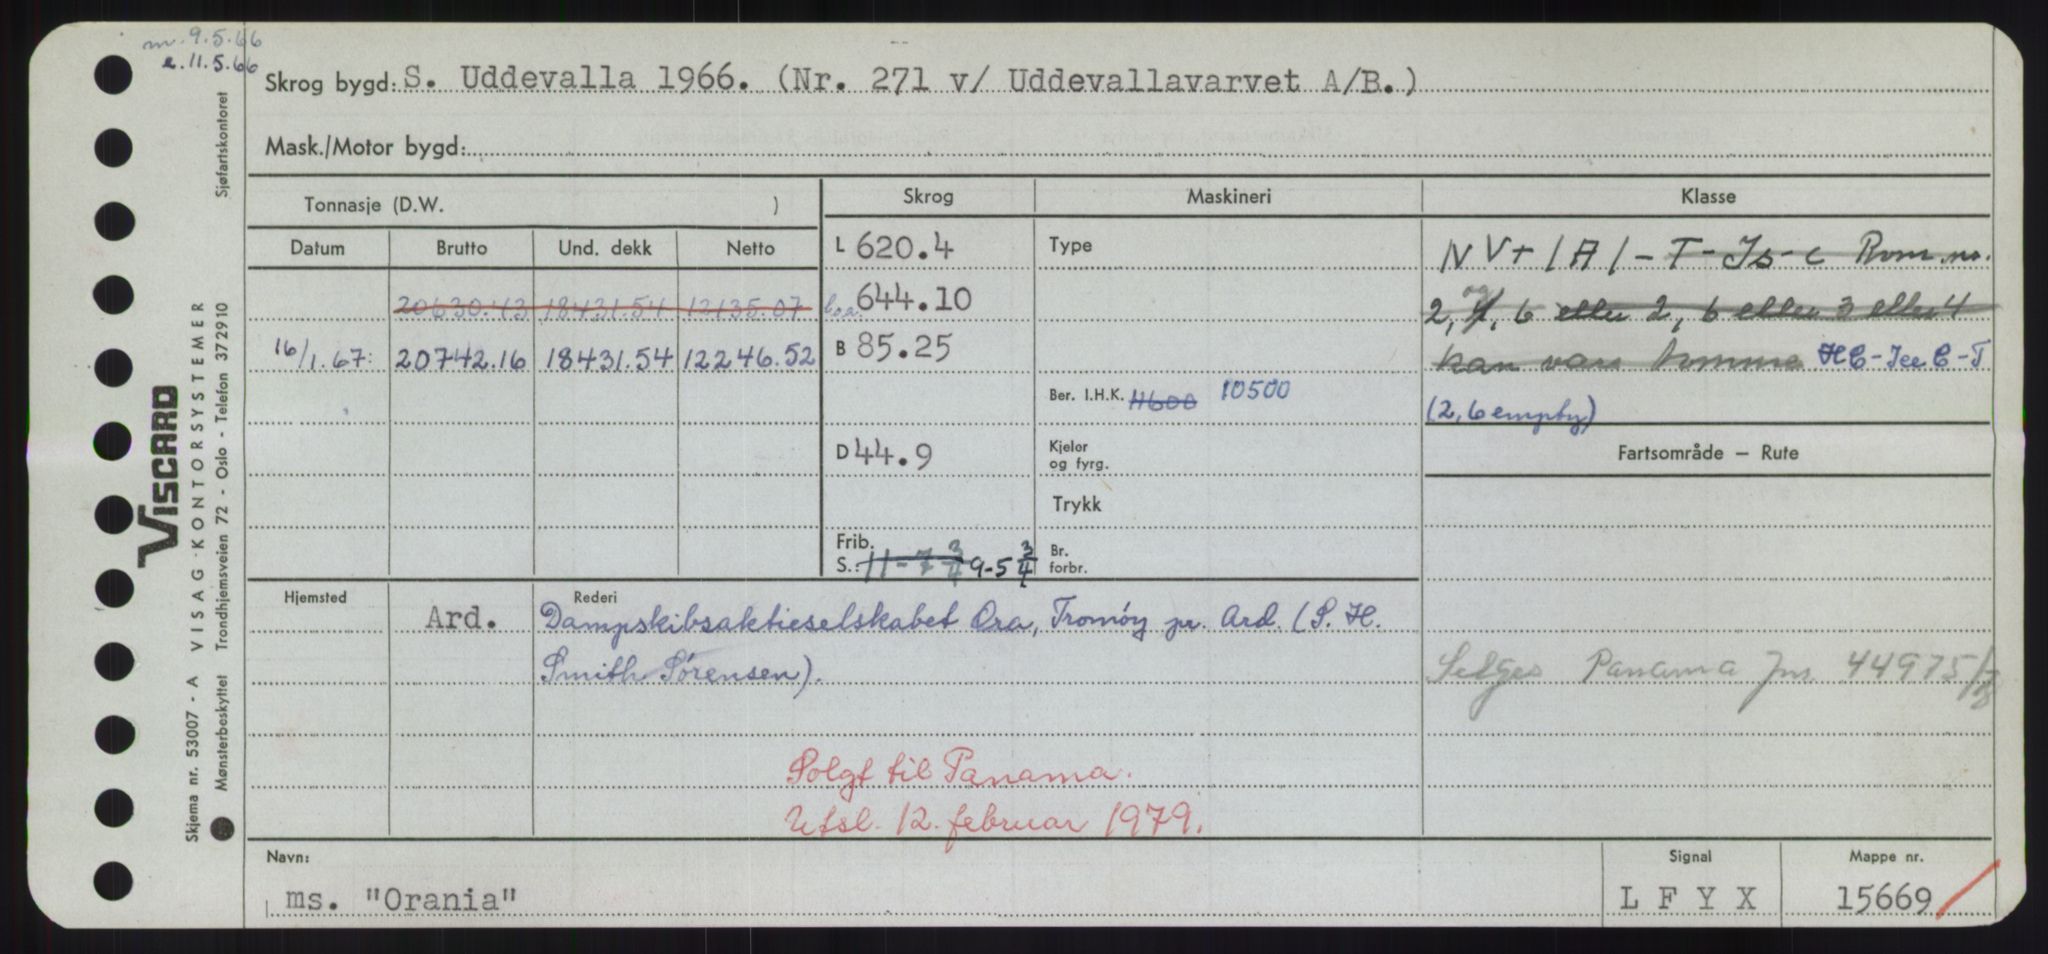 m. 9.5.66
e. 11.5.66
Skrog bygd: S. Uddevalla 1966. (Nr. 271 v/ Uddevallavarvet A/B.)
Mask./Motor bygd:
Tonnasje (D.W. )
Datum Brutto Und. dekk Netto
20630.43 18431.54 12135.07
16/1.67: 20742.16 18431.54 12246.52
Skrog
L 620.4
boa. 644.10
B 85.25
D 44.9
Frib.
S.: 11-7 3/4 9-5 3/4
Maskineri
Type
Ber. I.H.K. 11600 10500
Kjeler
og fyrg.
Trykk
Br.
forbr.
Klasse
NV+1A1-T-Is-c Rom no.
2, og 4, 6 eller 2, 6 eller 3 eller 4
kan være tomme HC-IceC-T
(2,6 empty)
Fartsområde – Rute
Selges Panama Jnr. 44975/78
Hjemsted Ard.
Rederi Dampskibsaktieselskabet Ora, Tromöy pr. Ard. (S. H.
Smith Sørensen).
Solgt til Panama.
Utsl. 12. februar 1979.
Navn: ms. "Orania"
Signal LFYX
Mappe nr. 15669
Sjøfartskontoret
VISCARD
VISAG KONTORSYSTEMER
Trondhjemsveien 72 - Oslo - Telefon 372910
Skjema nr. 53007 - A
Mønsterbeskyttet